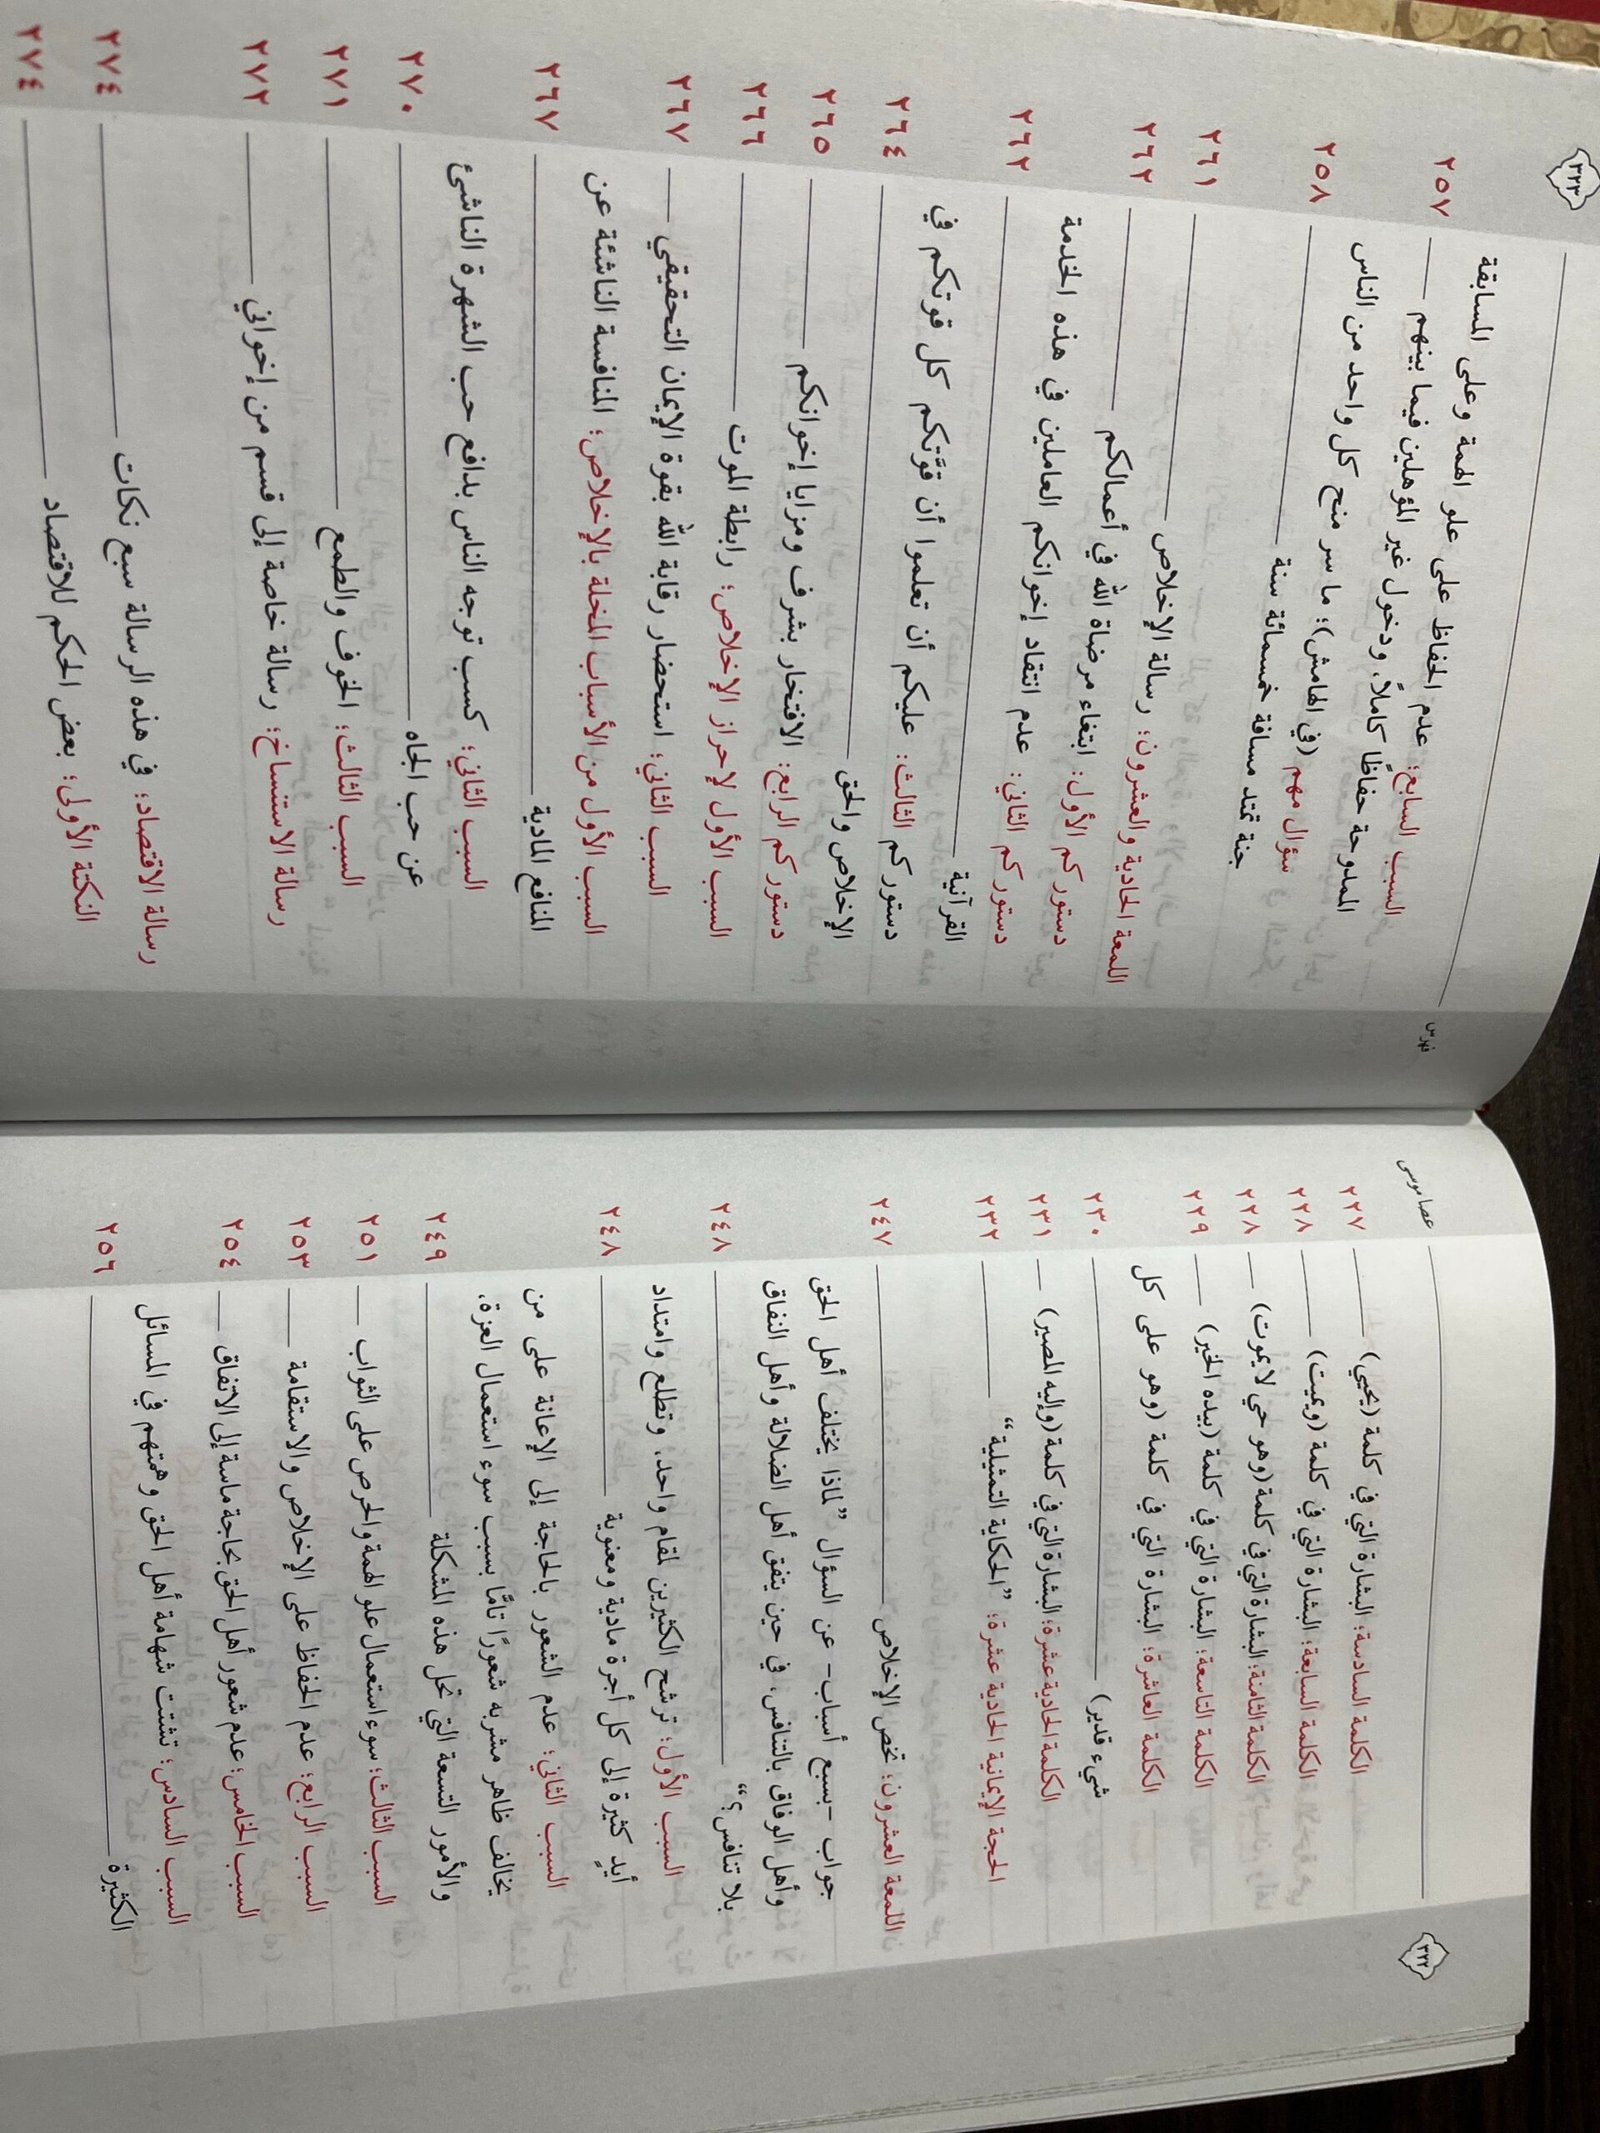 ٣٢٢
عصا موسى
الكلمة السادسة: البشارة التي في كلمة (يحيي) ٢٢٧
الكلمة السابعة: البشارة التي في كلمة (ويميت) ٢٢٨
الكلمة الثامنة: البشارة التي في كلمة (وهو حي لا يموت) ٢٢٨
الكلمة التاسعة: البشارة التي في كلمة (بيده الخير) ٢٢٩
الكلمة العاشرة: البشارة التي في كلمة (وهو على كل
شيء قدير) ٢٣٠
الكلمة الحادية عشرة: البشارة التي في كلمة (وإليه المصير) ٢٣١
الحجة الإيمانية الحادية عشرة: "الحكاية التمثيلية" ٢٣٢
اللمعة العشرون: تخص الإخلاص ٢٤٧
جواب -بسبع أسباب- عن السؤال "لماذا يختلف أهل الحق
وأهل الوفاق بالتنافس، في حين يتفق أهل الضلالة وأهل النفاق
بلا تنافس؟" ٢٤٨
السبب الأول: ترشح الكثيرين لمقام واحد، وتطلع وامتداد
أيدٍ كثيرة إلى كل أجرة مادية ومعنوية ٢٤٨
السبب الثاني: عدم الشعور بالحاجة إلى الإعانة على من
يخالف ظاهر مشربه شعورًا تامًّا بسبب سوء استعمال العزة،
والأمور التسعة التي تحل هذه المشكلة ٢٤٩
السبب الثالث: سوء استعمال علو الهمة والحرص على الثواب ٢٥١
السبب الرابع: عدم الحفاظ على الإخلاص والاستقامة ٢٥٣
السبب الخامس: عدم شعور أهل الحق بحاجة ماسة إلى الاتفاق ٢٥٤
السبب السادس: تشتت شهامة أهل الحق وهمتهم في المسائل
الكثيرة ٢٥٦
فهرس
٣٢٣
السبب السابع: عدم الحفاظ على علو الهمة وعلى المسابقة
الممدوحة حفاظًا كاملاً، ودخول غير المؤهلين فيما بينهم ٢٥٧
سؤال مهم (في الهامش): ما سر منح كل واحد من الناس
جنة تمتد مسافة خمسمائة سنة ٢٥٨
اللمعة الحادية والعشرون: رسالة الإخلاص ٢٦١
دستوركم الأول: ابتغاء مرضاة الله في أعمالكم ٢٦٢
دستوركم الثاني: عدم انتقاد إخوانكم العاملين في هذه الخدمة
القرآنية ٢٦٢
دستوركم الثالث: عليكم أن تعلموا أن قوّتكم كل قوتكم في
الإخلاص والحق ٢٦٤
دستوركم الرابع: الافتخار بشرف ومزايا إخوانكم ٢٦٥
السبب الأول لإحراز الإخلاص: رابطة الموت ٢٦٦
السبب الثاني: استحضار رقابة الله بقوة الإيمان التحقيقي ٢٦٧
السبب الأول من الأسباب المخلة بالإخلاص: المنافسة الناشئة عن
المنافع المادية ٢٦٧
السبب الثاني: كسب توجه الناس بدافع حب الشهرة الناشئ
عن حب الجاه ٢٧٠
السبب الثالث: الخوف والطمع ٢٧١
رسالة الاستنساخ: رسالة خاصة إلى قسم من إخواني ٢٧٢
رسالة الاقتصاد: في هذه الرسالة سبع نكات ٢٧٤
النكتة الأولى: بعض الحكم للاقتصاد ٢٧٤